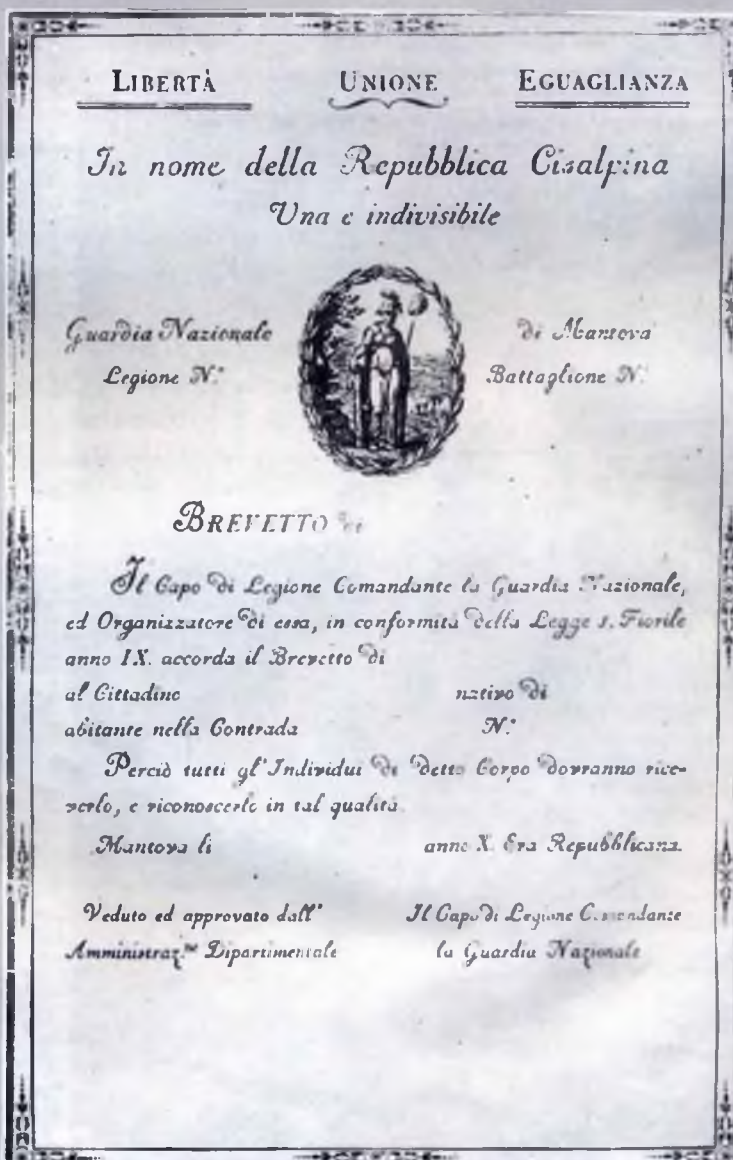 LIBERTÀ UNIONE EGUAGLIANZA
In nome della Repubblica Cisalpina
Una e indivisibile
Guardia Nazionale di Mantova
Legione N.° Battaglione N.°
BREVETTO di
Il Capo di Legione Comandante la Guardia Nazionale,
ed Organizzatore di essa, in conformità della Legge 1. Fiorile
anno IX. accorda il Brevetto di
al Cittadino nativo di
abitante nella Contrada N.°
Perciò tutti gl'Individui di detto Corpo dovranno rice-
verlo, e riconoscerlo in tal qualità.
Mantova li anno X. Era Repubblicana.
Veduto ed approvato dall' Il Capo di Legione Comandante
Amministraz.ne Dipartimentale la Guardia Nazionale